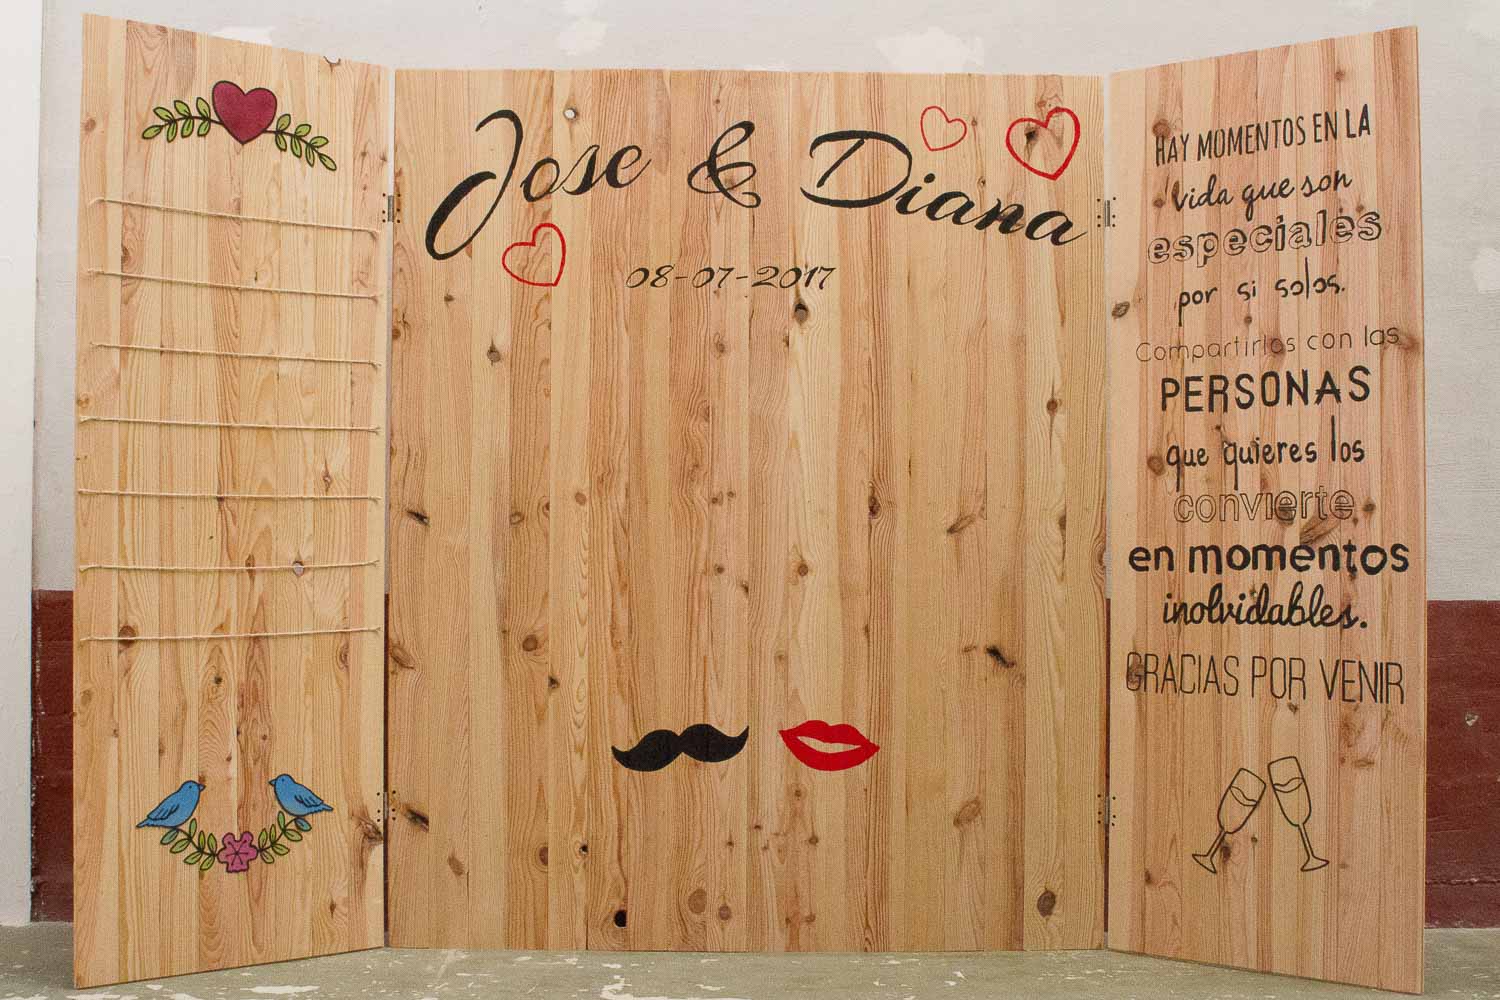 Jose & Diana
08-07-2017
HAY MOMENTOS EN LA
vida que son
especiales
por si solos.
Compartirlos con las
PERSONAS
que quieres los
convierte
en momentos
inolvidables.
GRACIAS POR VENIR